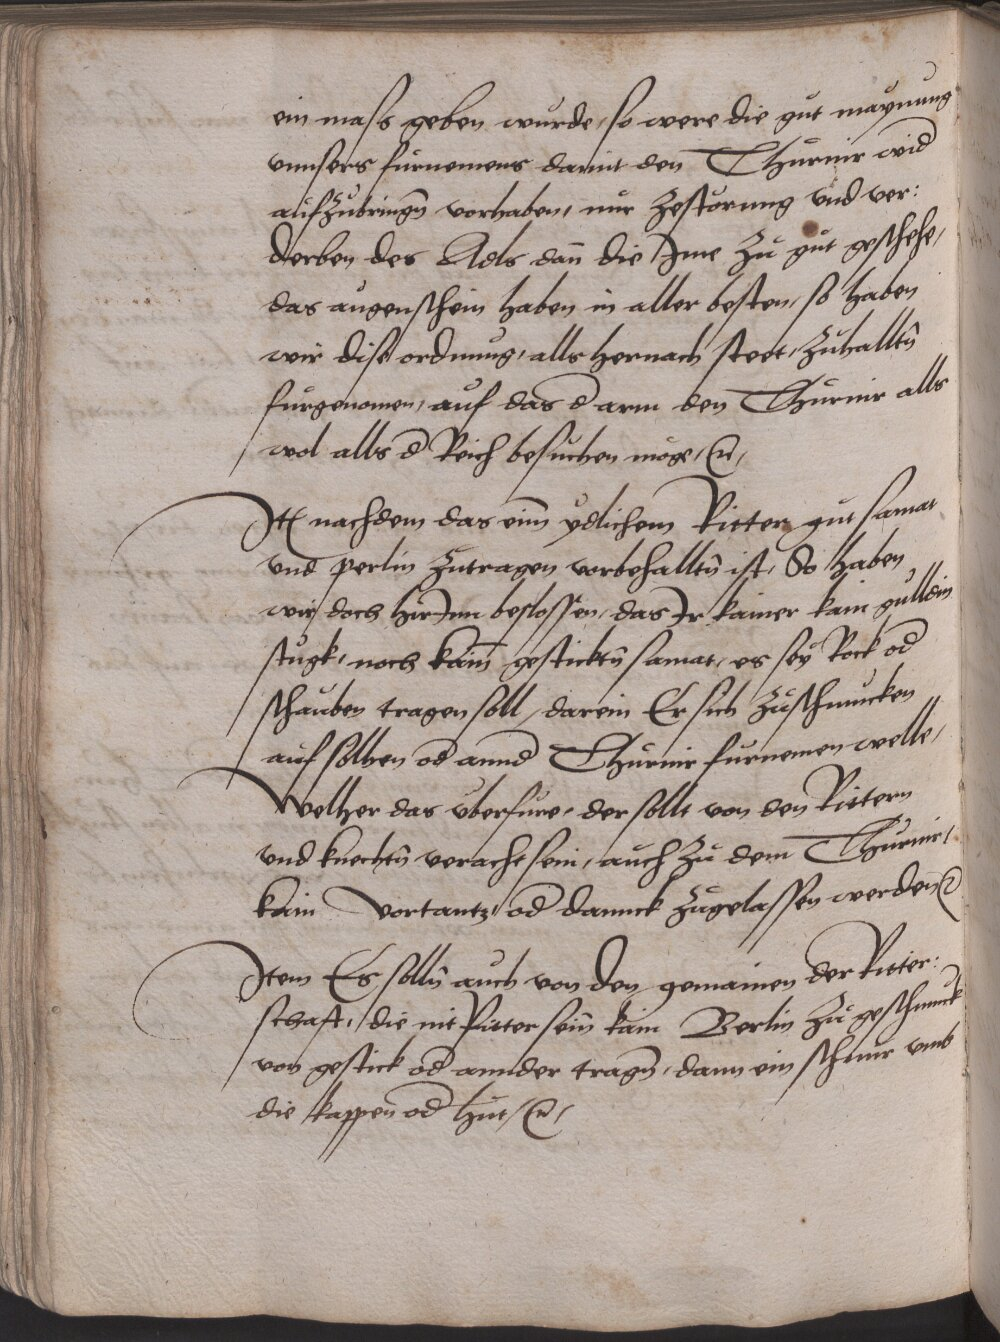 ein mass geben wurde, so were die gut maynung
vnnsers furnemens damit den Thurnir wid
aufzubringn̄ vorhaben, mer zestörung vnd ver:
derben des Adls dan̄ die Jme zu gut geschehe,
das augenschein haben in aller besten, so haben
wir dise ordnung, alls hernach steet, zuhalltn̄
furgenomen, auf das d arm den Thurnir alls
wol alls d Reich besuchen möge, ꝛc,
Jtē nachdem das eim̄ ydlichem Ritter gut samat
vnd perlin zutragen vorbehalltn̄ ist, So haben
wir doch hirJnn beslossen, das Jr kainer kain gulldin
stugk, noch kain̄ gesticktn̄ samat, es sey Rock od
schauben tragen soll, darein Er sich zuschmucken
auf sölhen od annd Thurnir furnemen welle,
Welher das vberfure, der sollt von den Rittern
vnd knechtn̄ veracht sein, auch zu dem Thurnir,
kain vortantz, od dannck zugelassen werden ꝛc
Jtem Es solln̄ auch von den gemainen der Ritter:
schaft, die nit Ritter sein̄ kain Berlin zu geschmuck
von gestick od annder tragn̄, dann ein schnur vmb
die kappen od hut, ꝛc,